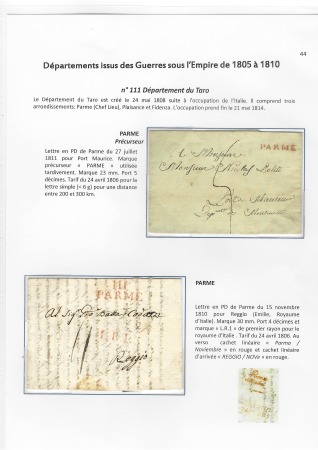 44
Départements issus des Guerres sous l'Empire de 1805 à 1810
n° 111 Département du Taro
Le Département du Taro est créé le 24 mai 1808 suite à l'occupation de l'Italie. Il comprend trois
arrondissements: Parme (Chef Lieu), Plaisance et Fidenza. L'occupation prend fin le 21 mai 1814.
PARME
Précurseur
Lettre en PD de Parme du 27 juillet
1811 pour Port Maurice. Marque
précurseur « PARME » utilisée
tardivement. Marque 23 mm. Port 5
décimes. Tarif du 24 avril 1806 pour la
lettre simple (< 6 g) pour une distance
entre 200 et 300 km.
PARME
a Monsieur
Monsieur
5
PARME
Lettre en PD de Parme du 15 novembre
1810 pour Reggio (Emilie, Royaume
d'Italie). Marque 30 mm. Port 4 décimes et
marque « L.R.1 » de premier rayon pour le
royaume d'Italie . Tarif du 24 avril 1806. Au
verso cachet linéaire « Parma /
Novembre » en rouge et cachet linéaire
d'arrivée « REGGIO / NOVe » en rouge.
111
PARME
Reggio